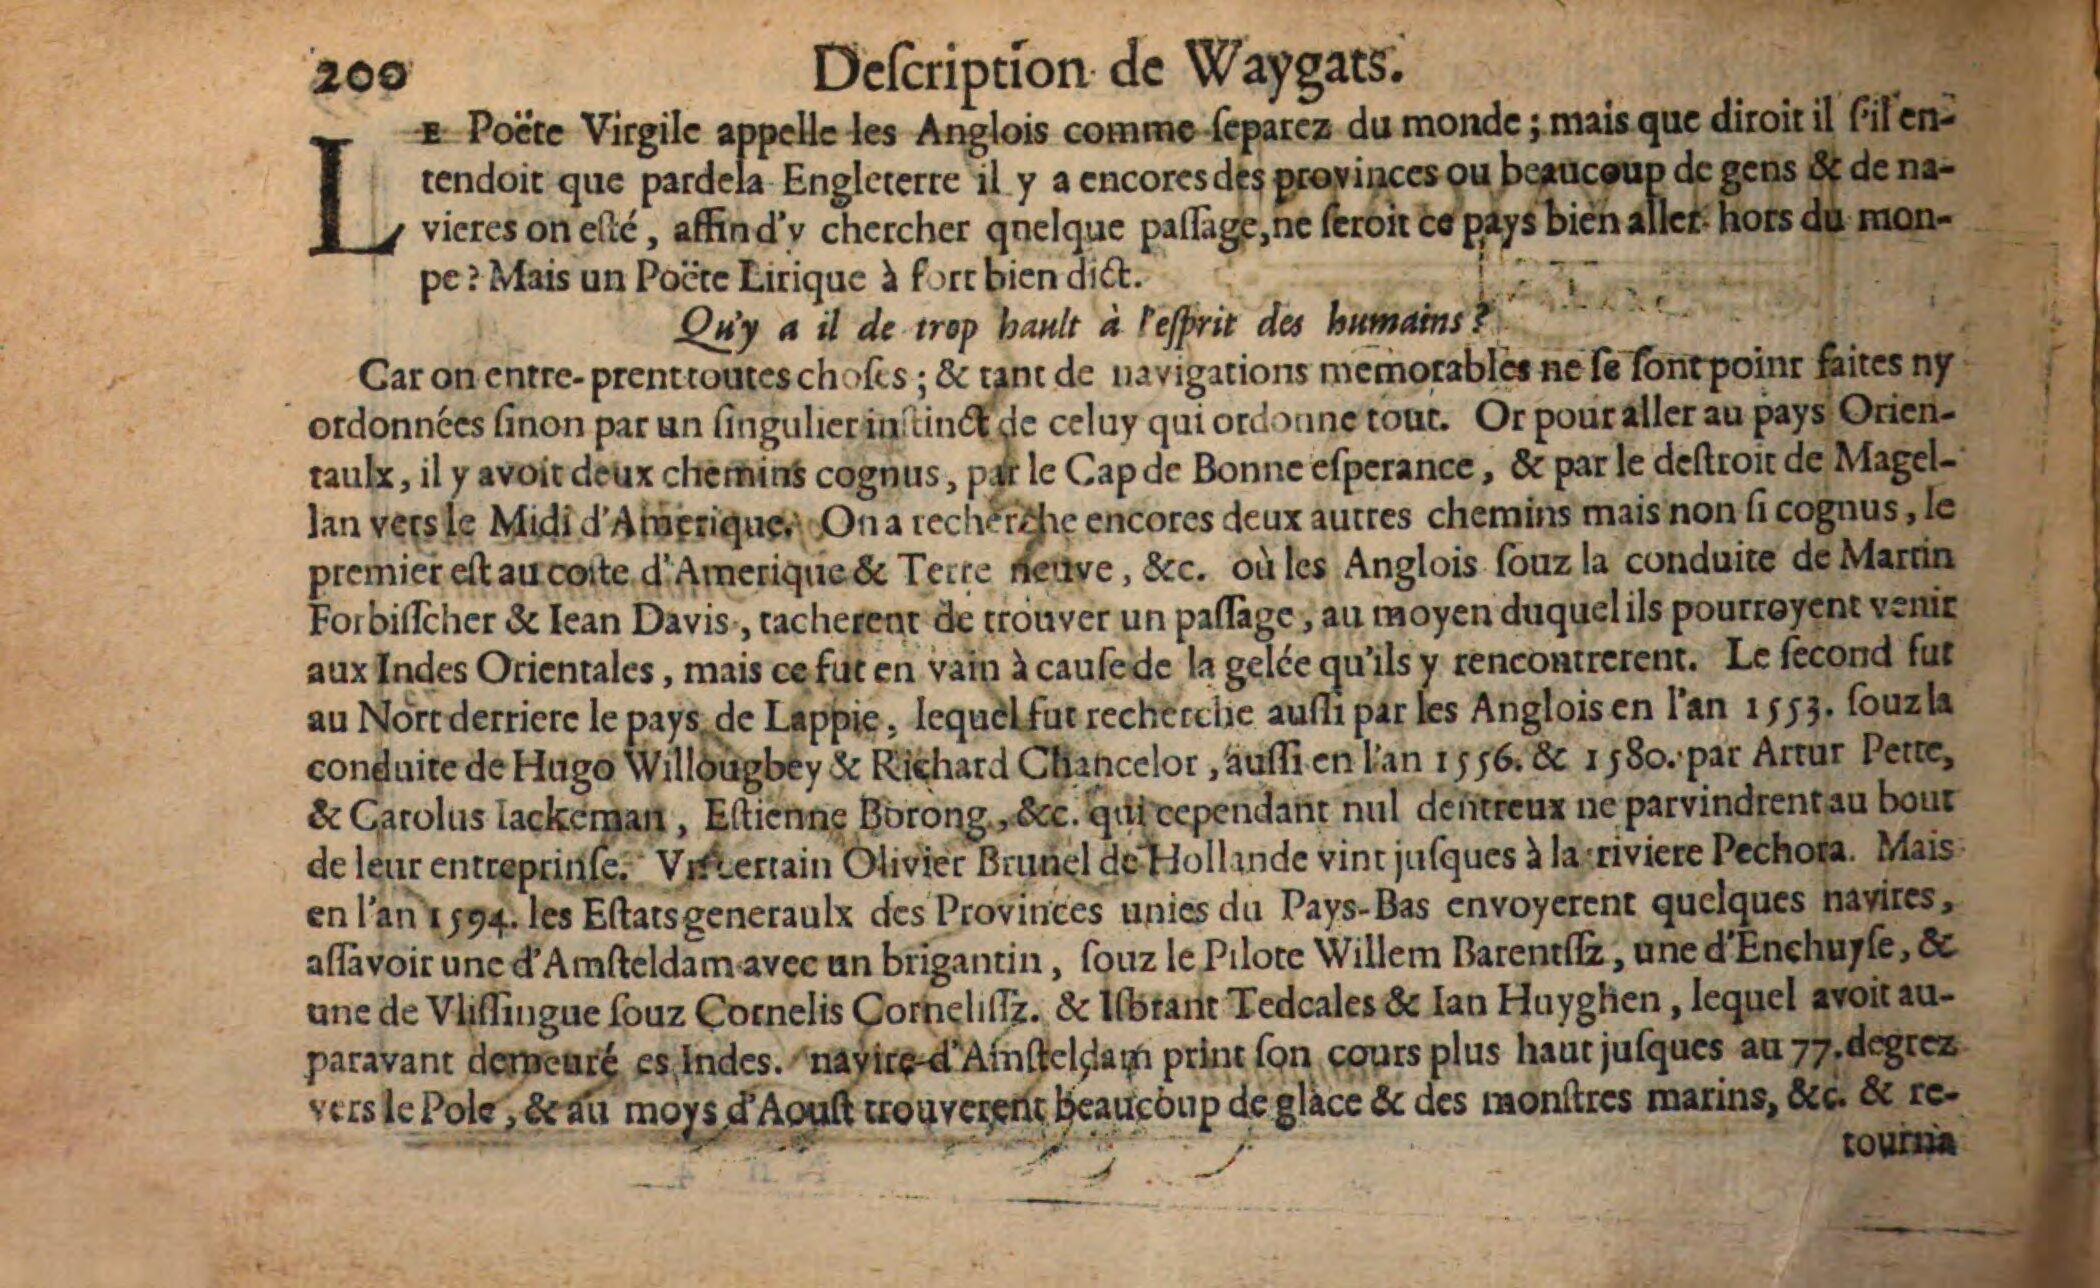 200 Deſcription de Waygats.
LE Poëte Virgile appelle les Anglois comme ſeparez du monde; mais que diroit il ſ'il en-
tendoit que pardela Engleterre il y a encores des provinces ou beaucoup de gens & de na-
vieres on eſté, affin d'y chercher qnelque paſſage, ne ſeroit ce pays bien aller hors du mon-
pe? Mais un Poëte Lirique à fort bien dict.
Qu'y a il de trop hault à l'eſprit des humains?
Car on entre-prent toutes choſes; & tant de navigations memorables ne ſe ſont point faites ny
ordonnées ſinon par un ſingulier inſtinct de celuy qui ordonne tout. Or pour aller au pays Orien-
taulx, il y avoit deux chemins cognus, par le Cap de Bonne eſperance, & par le deſtroit de Magel-
lan vers le Midi d'Amerique. On a recherche encores deux autres chemins mais non ſi cognus, le
premier eſt au coſte d'Amerique & Terre neuve, &c. où les Anglois ſouz la conduite de Martin
Forbiſſcher & Iean Davis, tacherent de trouver un paſſage, au moyen duquel ils pourroyent venir
aux Indes Orientales, mais ce fut en vain à cauſe de la gelée qu'ils y rencontrerent. Le ſecond fut
au Nort derriere le pays de Lappie, lequel fut recherche auſſi par les Anglois en l'an 1553. ſouz la
conduite de Hugo Willougbey & Richard Chancelor, auſſi en l'an 1556. & 1580. par Artur Pette,
& Carolus Iackeman, Eſtienne Borong, &c. qui cependant nul dentreux ne parvindrent au bout
de leur entreprinſe. Vn certain Olivier Brunel de Hollande vint juſques à la riviere Pechora. Mais
en l'an 1594. les Eſtats generaulx des Provinces unies du Pays-Bas envoyerent quelques navires,
aſſavoir une d'Amſteldam avec un brigantin, ſouz le Pilote Willem Barentſſz, une d'Enchuyſe, &
une de Vliſſingue ſouz Cornelis Corneliſſz. & Iſbrant Tedcales & Ian Huyghen, lequel avoit au-
paravant demeuré es Indes. navire d'Amſteldam print ſon cours plus haut juſques au 77. degrez
vers le Pole, & au moys d'Aouſt trouverent beaucoup de glace & des monſtres marins, &c. & re-
tourna